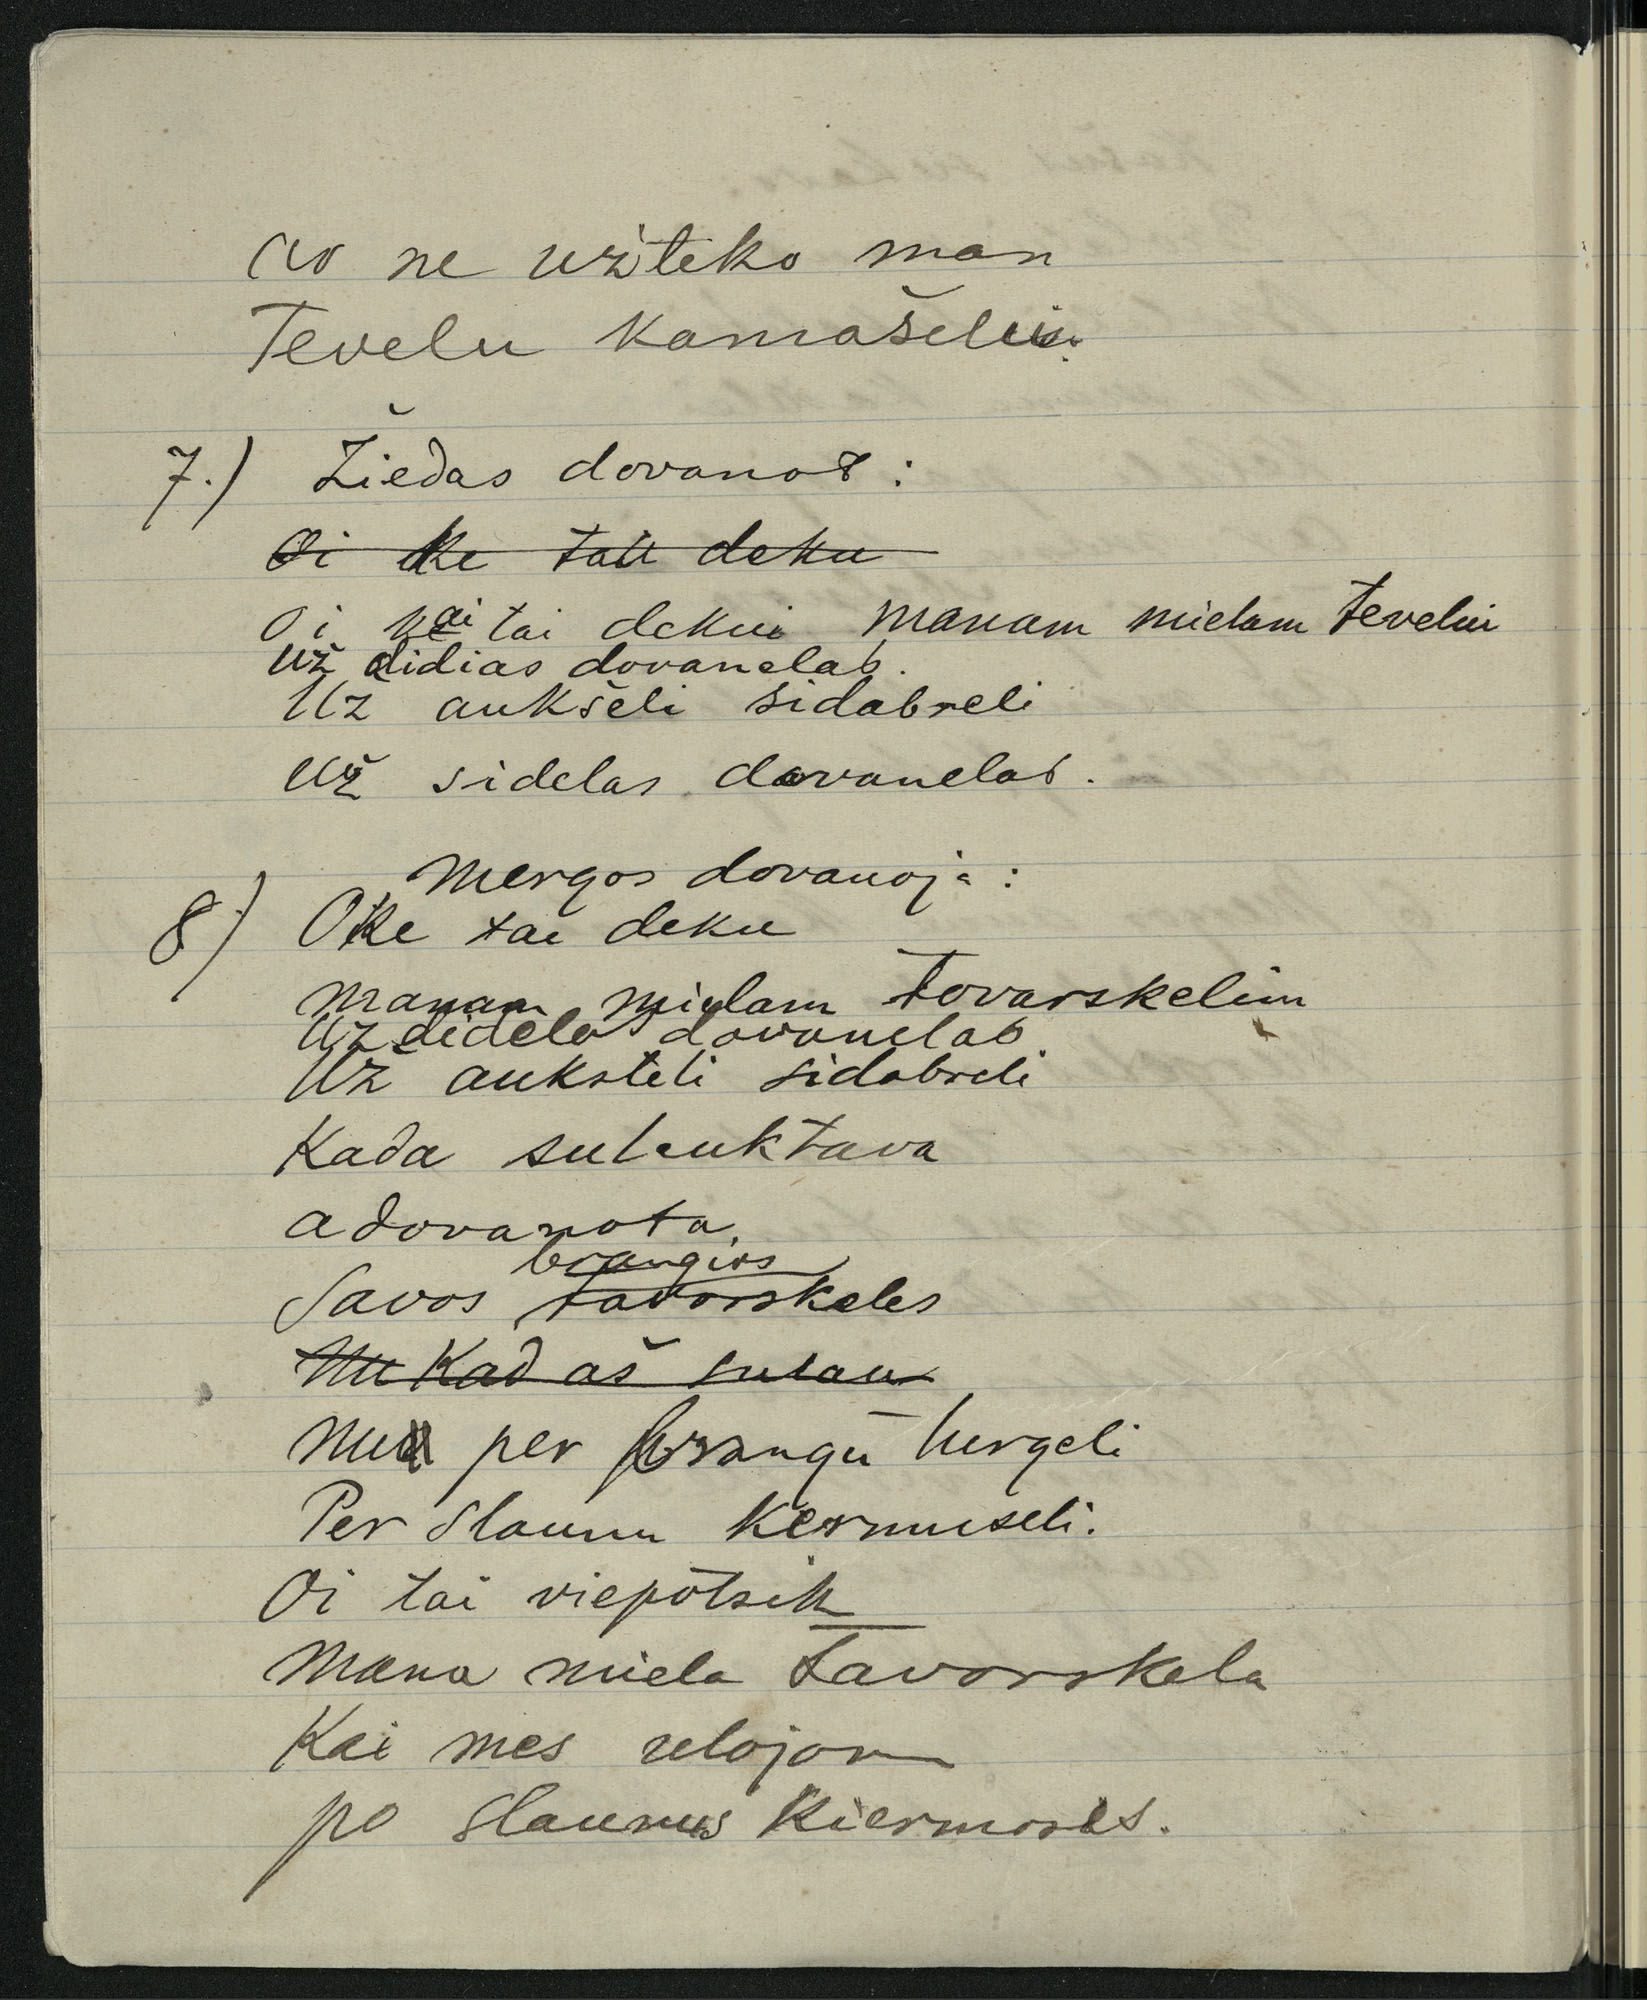 no ne užteko man
Tevelu kamašeliu.
7.) Žiedas dovanot:
Oi ke tau deku
Oi kai tai dekui manam mielam tevelui
už didias dovanelas.
Už aukšeli sidabreli
už sidelas dovanelas.
Mergos dovanoja:
8) O ke tai deku
manam mielam tovarskelim
Uz dideles dovanelas
Už auksteli sidabreli
Kada sulauktava
adovanota
brangios
Savos tavorskeles
Nu kad aš sulau
Nu per brangū turgeli
Per slaunu kermuseli.
Oi tai viepōtsik
Mana miela tavorskela
Kai mes uložom
po slaunus kiermošes.